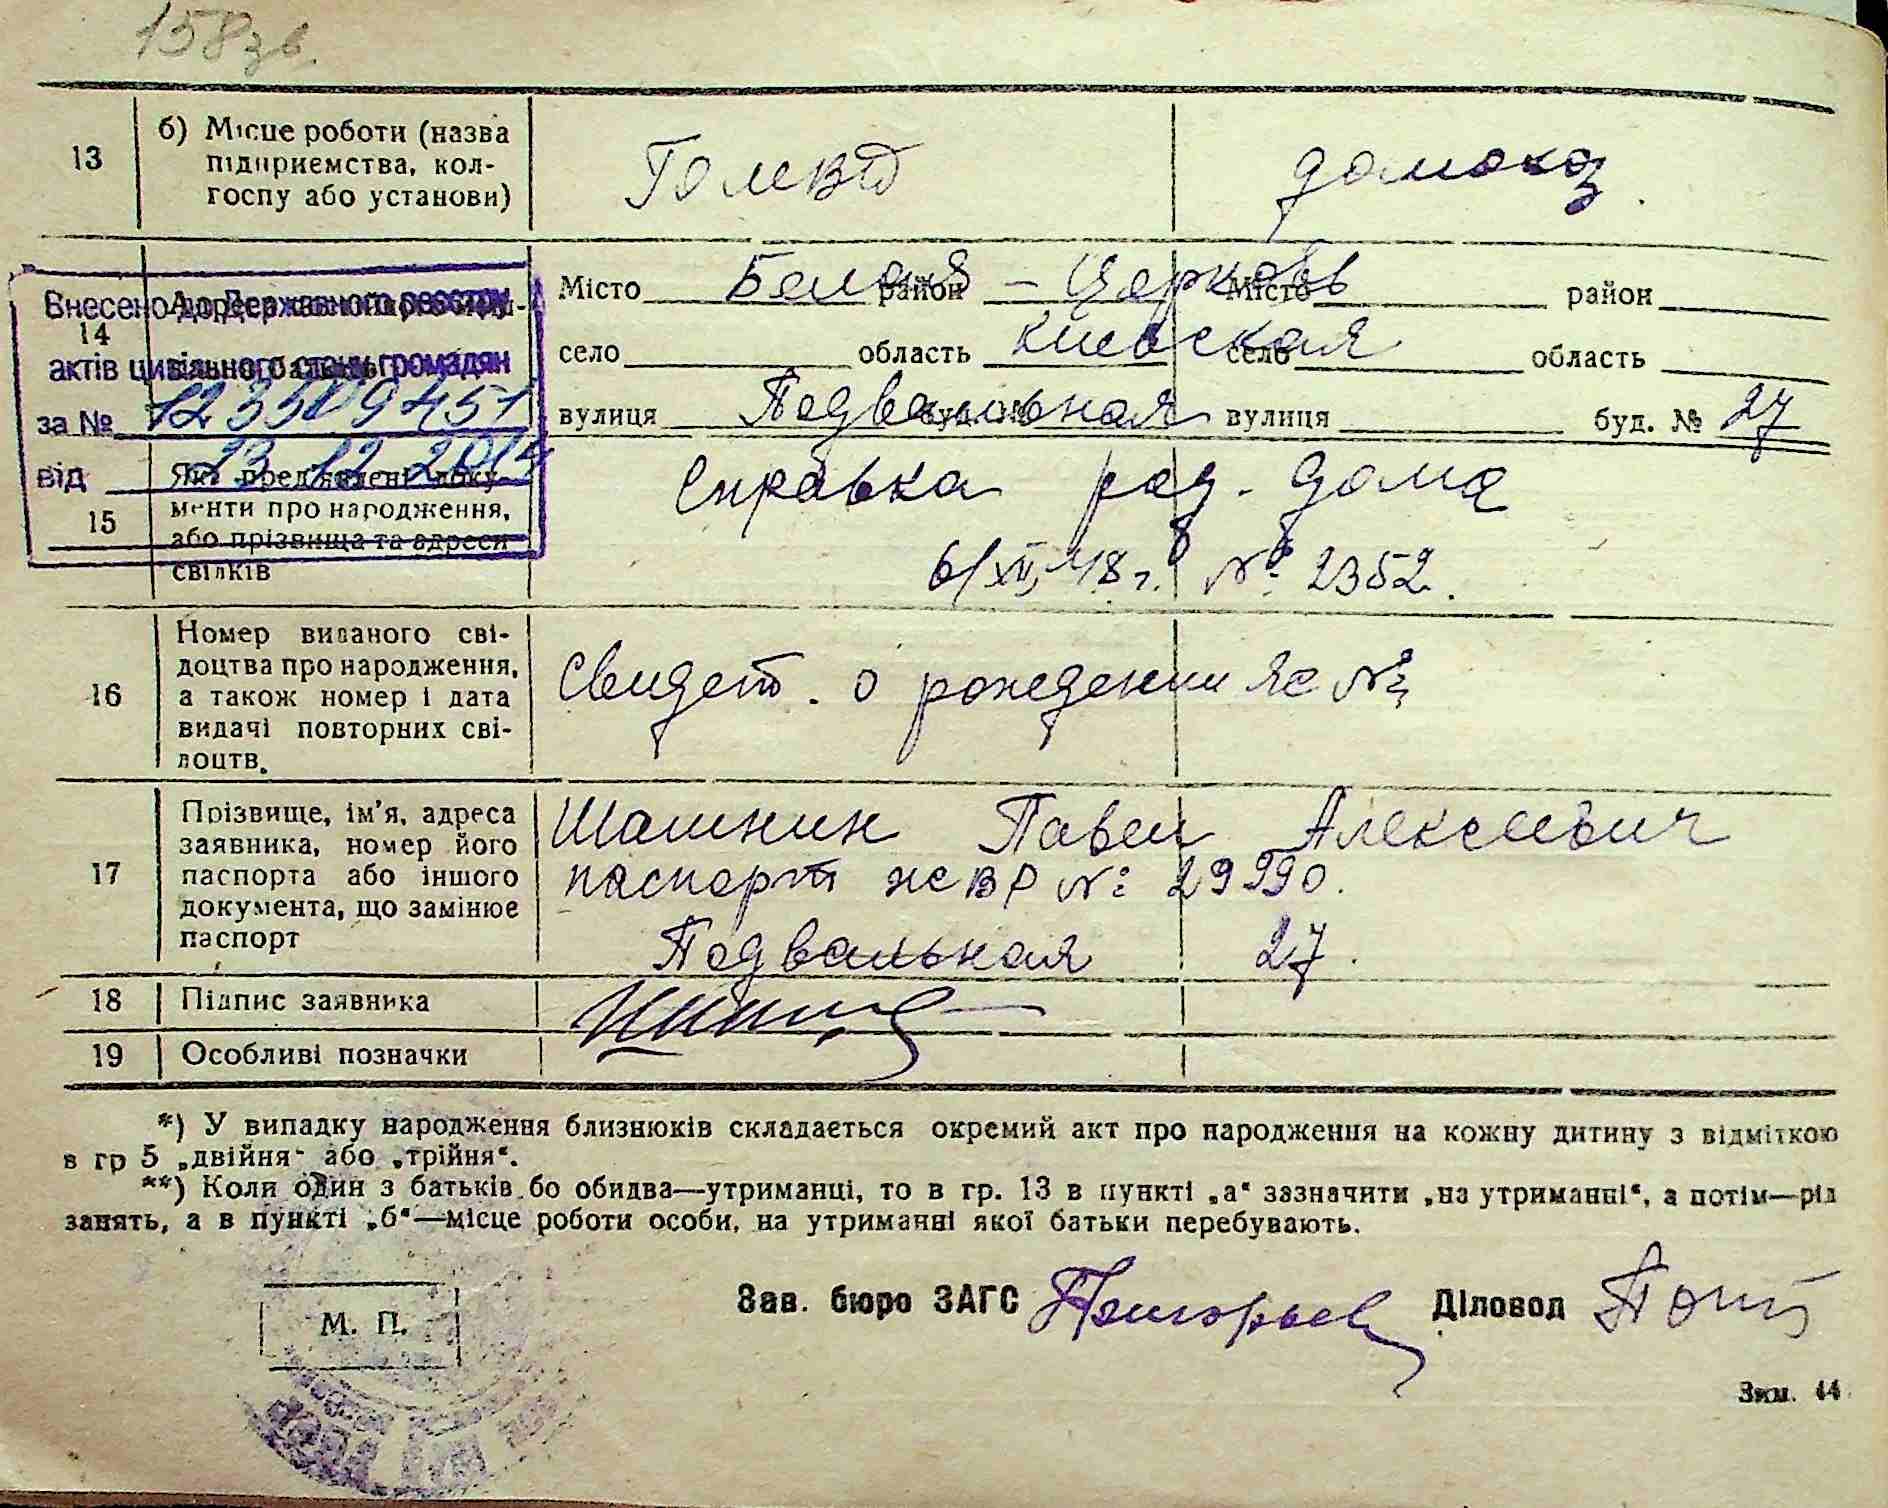 158 зв.
13
б) Місце роботи (назва
підприємства, кол-
госпу або установи)
домохоз.
Внесено до Державного реєстру
актів цивільного стану громадян
за № 123509451
від 23 12 201
14
Місто Белая район – Церковь Місто район
село область Киевская село область
вулиця Подвальная буд. № вулиця буд. № 27
15
Які пред'явлені доку-
менти про народження,
або прізвища та адреси
свідків
Справка род. дома
6/XII 48 г. № 2352.
16
Номер виданого сві-
доцтва про народження,
а також номер і дата
видачі повторних сві-
доцтв.
Свидет. о рождении ЯС №
17
Прізвище, ім'я, адреса
заявника, номер його
паспорта або іншого
документа, що замінює
паспорт
Шашнин Павел Алексеевич
паспорт № 29990.
Подвальная 27.
18 Підпис заявника
19 Особливі позначки
*) У випадку народження близнюків складається окремий акт про народження на кожну дитину з відміткою
в гр 5 „двійня" або „трійня".
**) Коли один з батьків бо обидва—утриманці, то в гр. 13 в пункті „а" зазначити „на утриманні", а потім—рід
занять, а в пункті „б"—місце роботи особи, на утриманні якої батьки перебувають.
М. П.
Зав. бюро ЗАГС Григорьев Діловод
Зим. 44